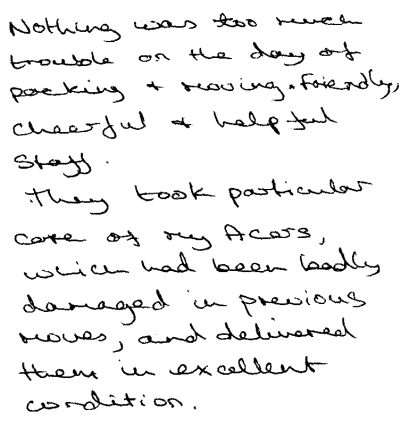 Nothing was too much
trouble on the day of
packing + moving. Friendly,
cheerful + helpful
staff.
They took particular
care of my Acers,
which had been badly
damaged in previous
moves, and delivered
them in excellent
condition.